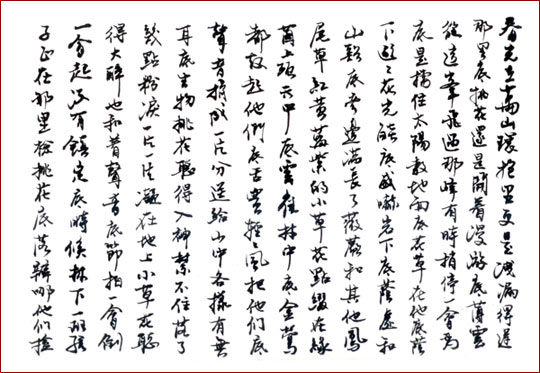 春光在萬山環抱里更是洩漏得遲
那里底桃花還是開着漫游底薄雲
從這峯飛過那峰有時稍停一會為
底是擋住太陽教地面底花草在他底蔭
下避避光焰底威嚇岩下底蔭處和
山谿底旁邊滿長了薇蕨和其他鳳
尾草紅黄藍紫的小草花點綴在緑
茵上頭天中底雲雀林中底金鶯
都鼓起他們底舌簧輕風把他們底
聲音擠成一片分送給山中各樣有無
耳底生物桃花聽得入神禁不住落了
幾點粉淚一片一片凝在地上小草花聽
得大醉也和着聲音底節拍一會倒
一會起沒有鎮定底時候林下一班孩
子正在那里撿桃花底落瓣哪他們撿